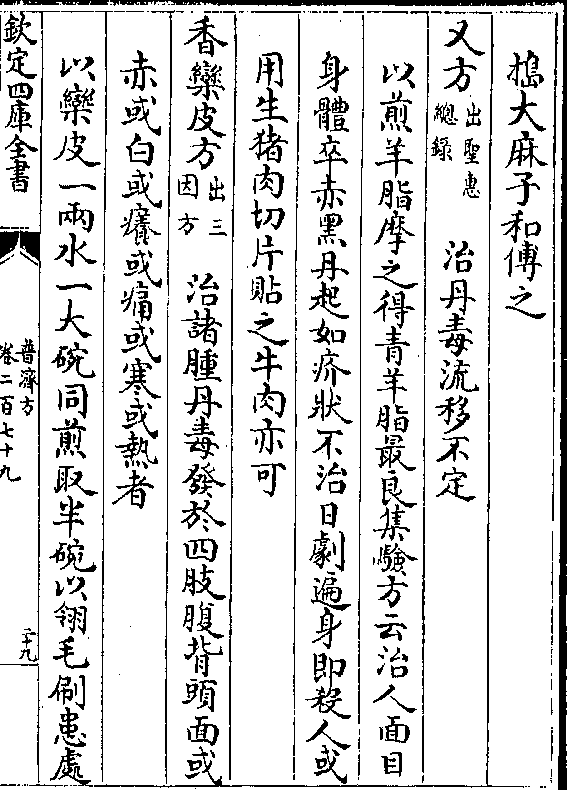 搗大麻子和傅之
又方出聖惠總録　治丹毒流移不定
以煎羊脂摩之得青羊脂最良集驗方云治人面目
身體卒赤黑丹起如疥狀不治日劇遍身即殺人或
用生猪肉切片貼之牛肉亦可
香欒皮方出三因方　治諸腫丹毒發於四肢腹背頭面或
赤或白或癢或痛或寒或熱者
以欒皮一兩水一大碗同煎取半碗以翎毛刷患處
欽定四庫全書
普濟方
卷二百七十九
二十九